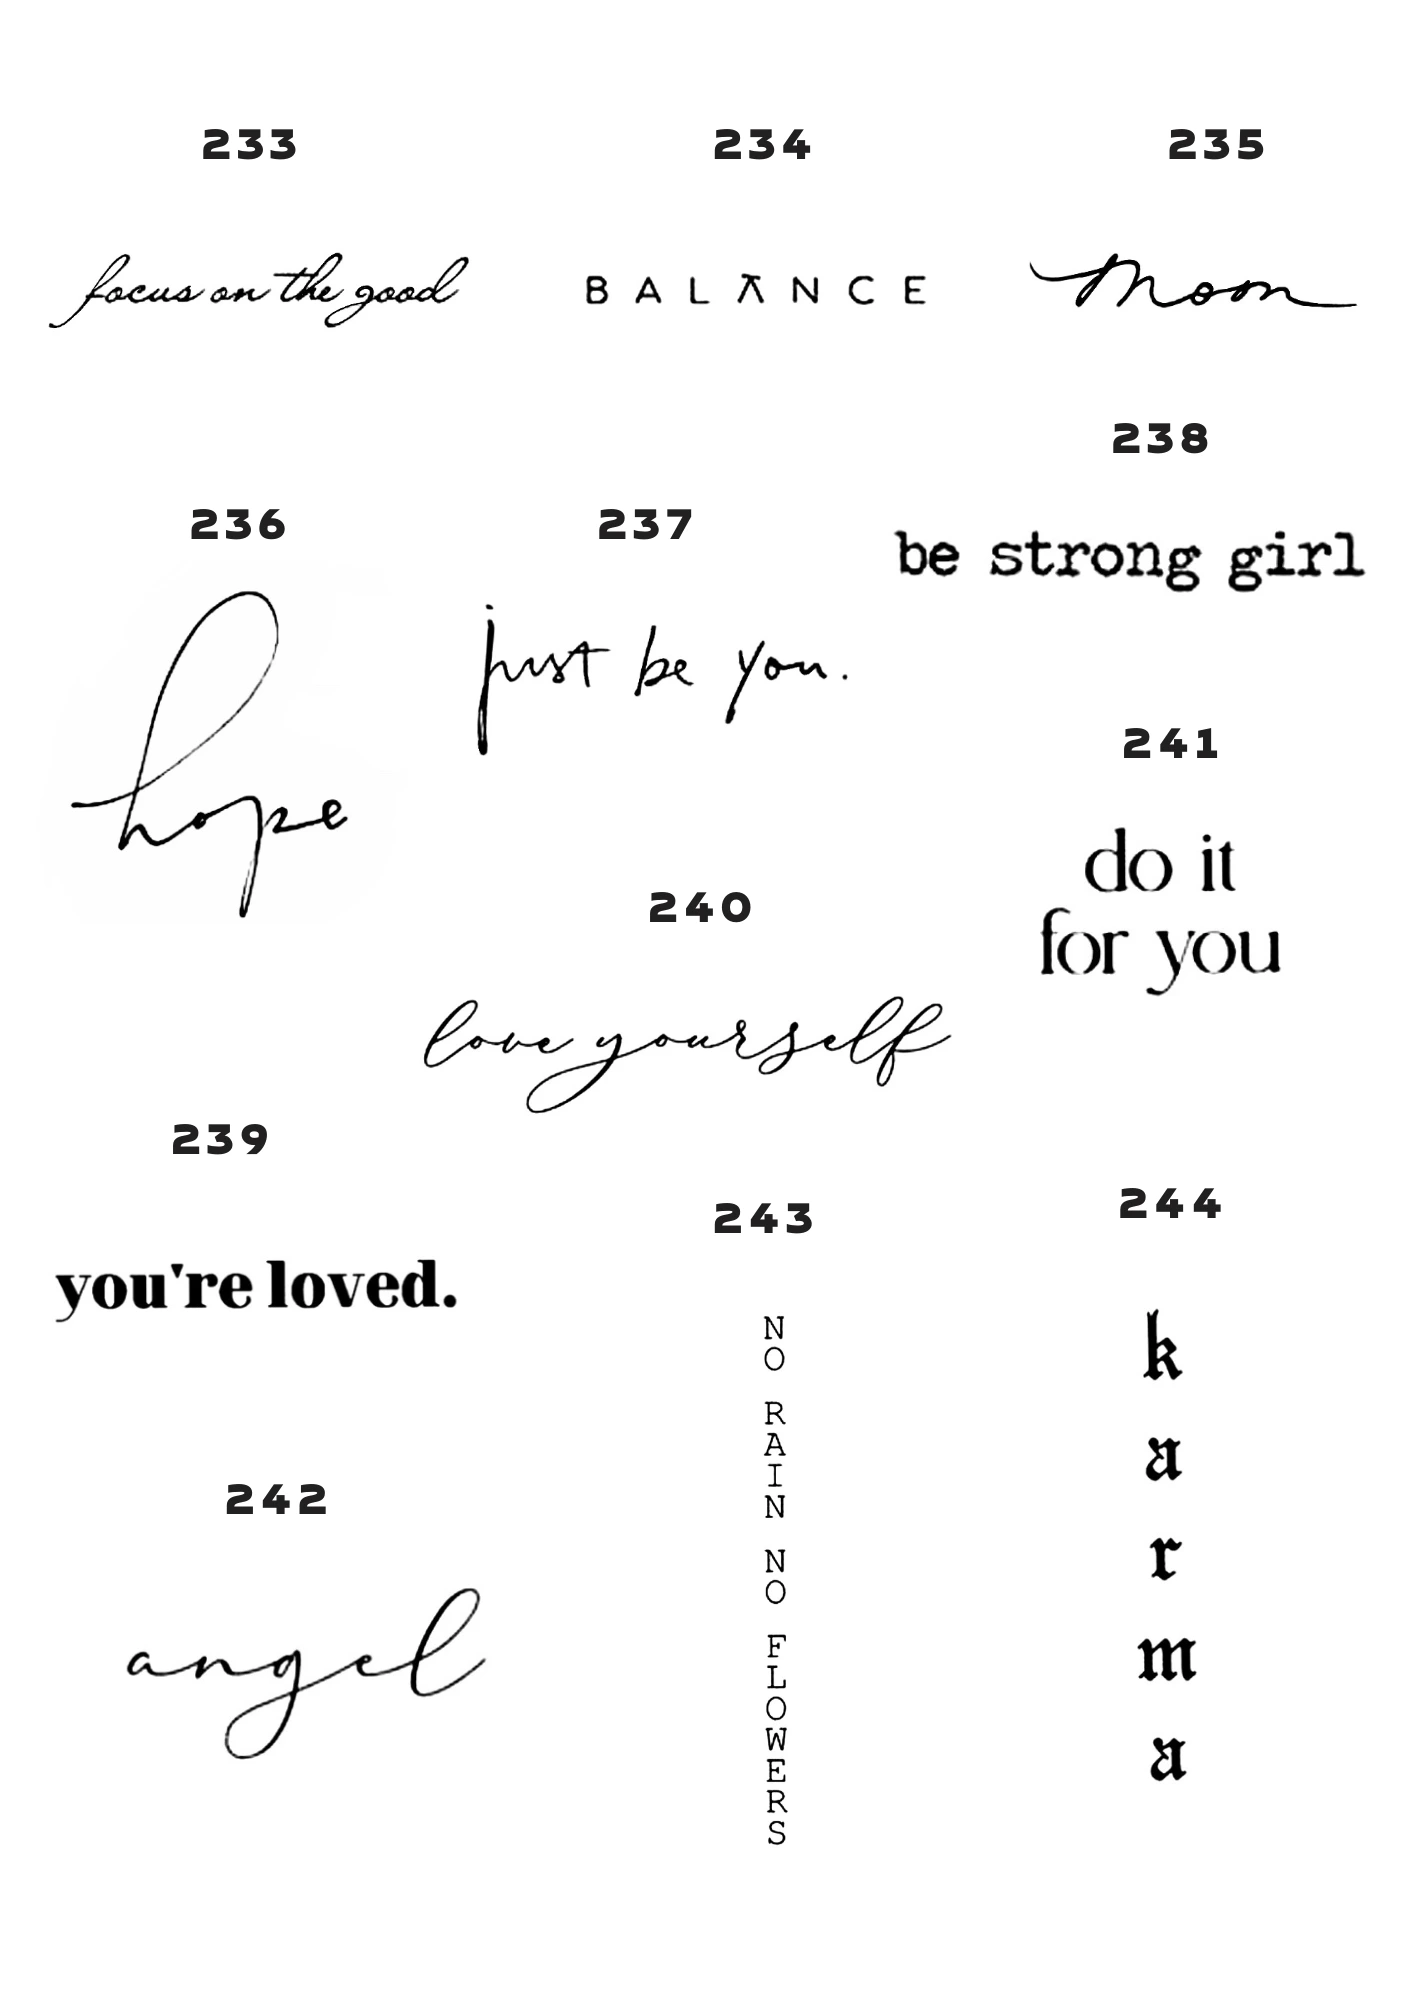 233
focus on the good
234
BALANCE
235
Moon
236
hope
237
just be you.
238
be strong girl
241
do it
for you
240
love yourself
239
you're loved.
242
angel
243
NO RAIN NO FLOWERS
244
karma